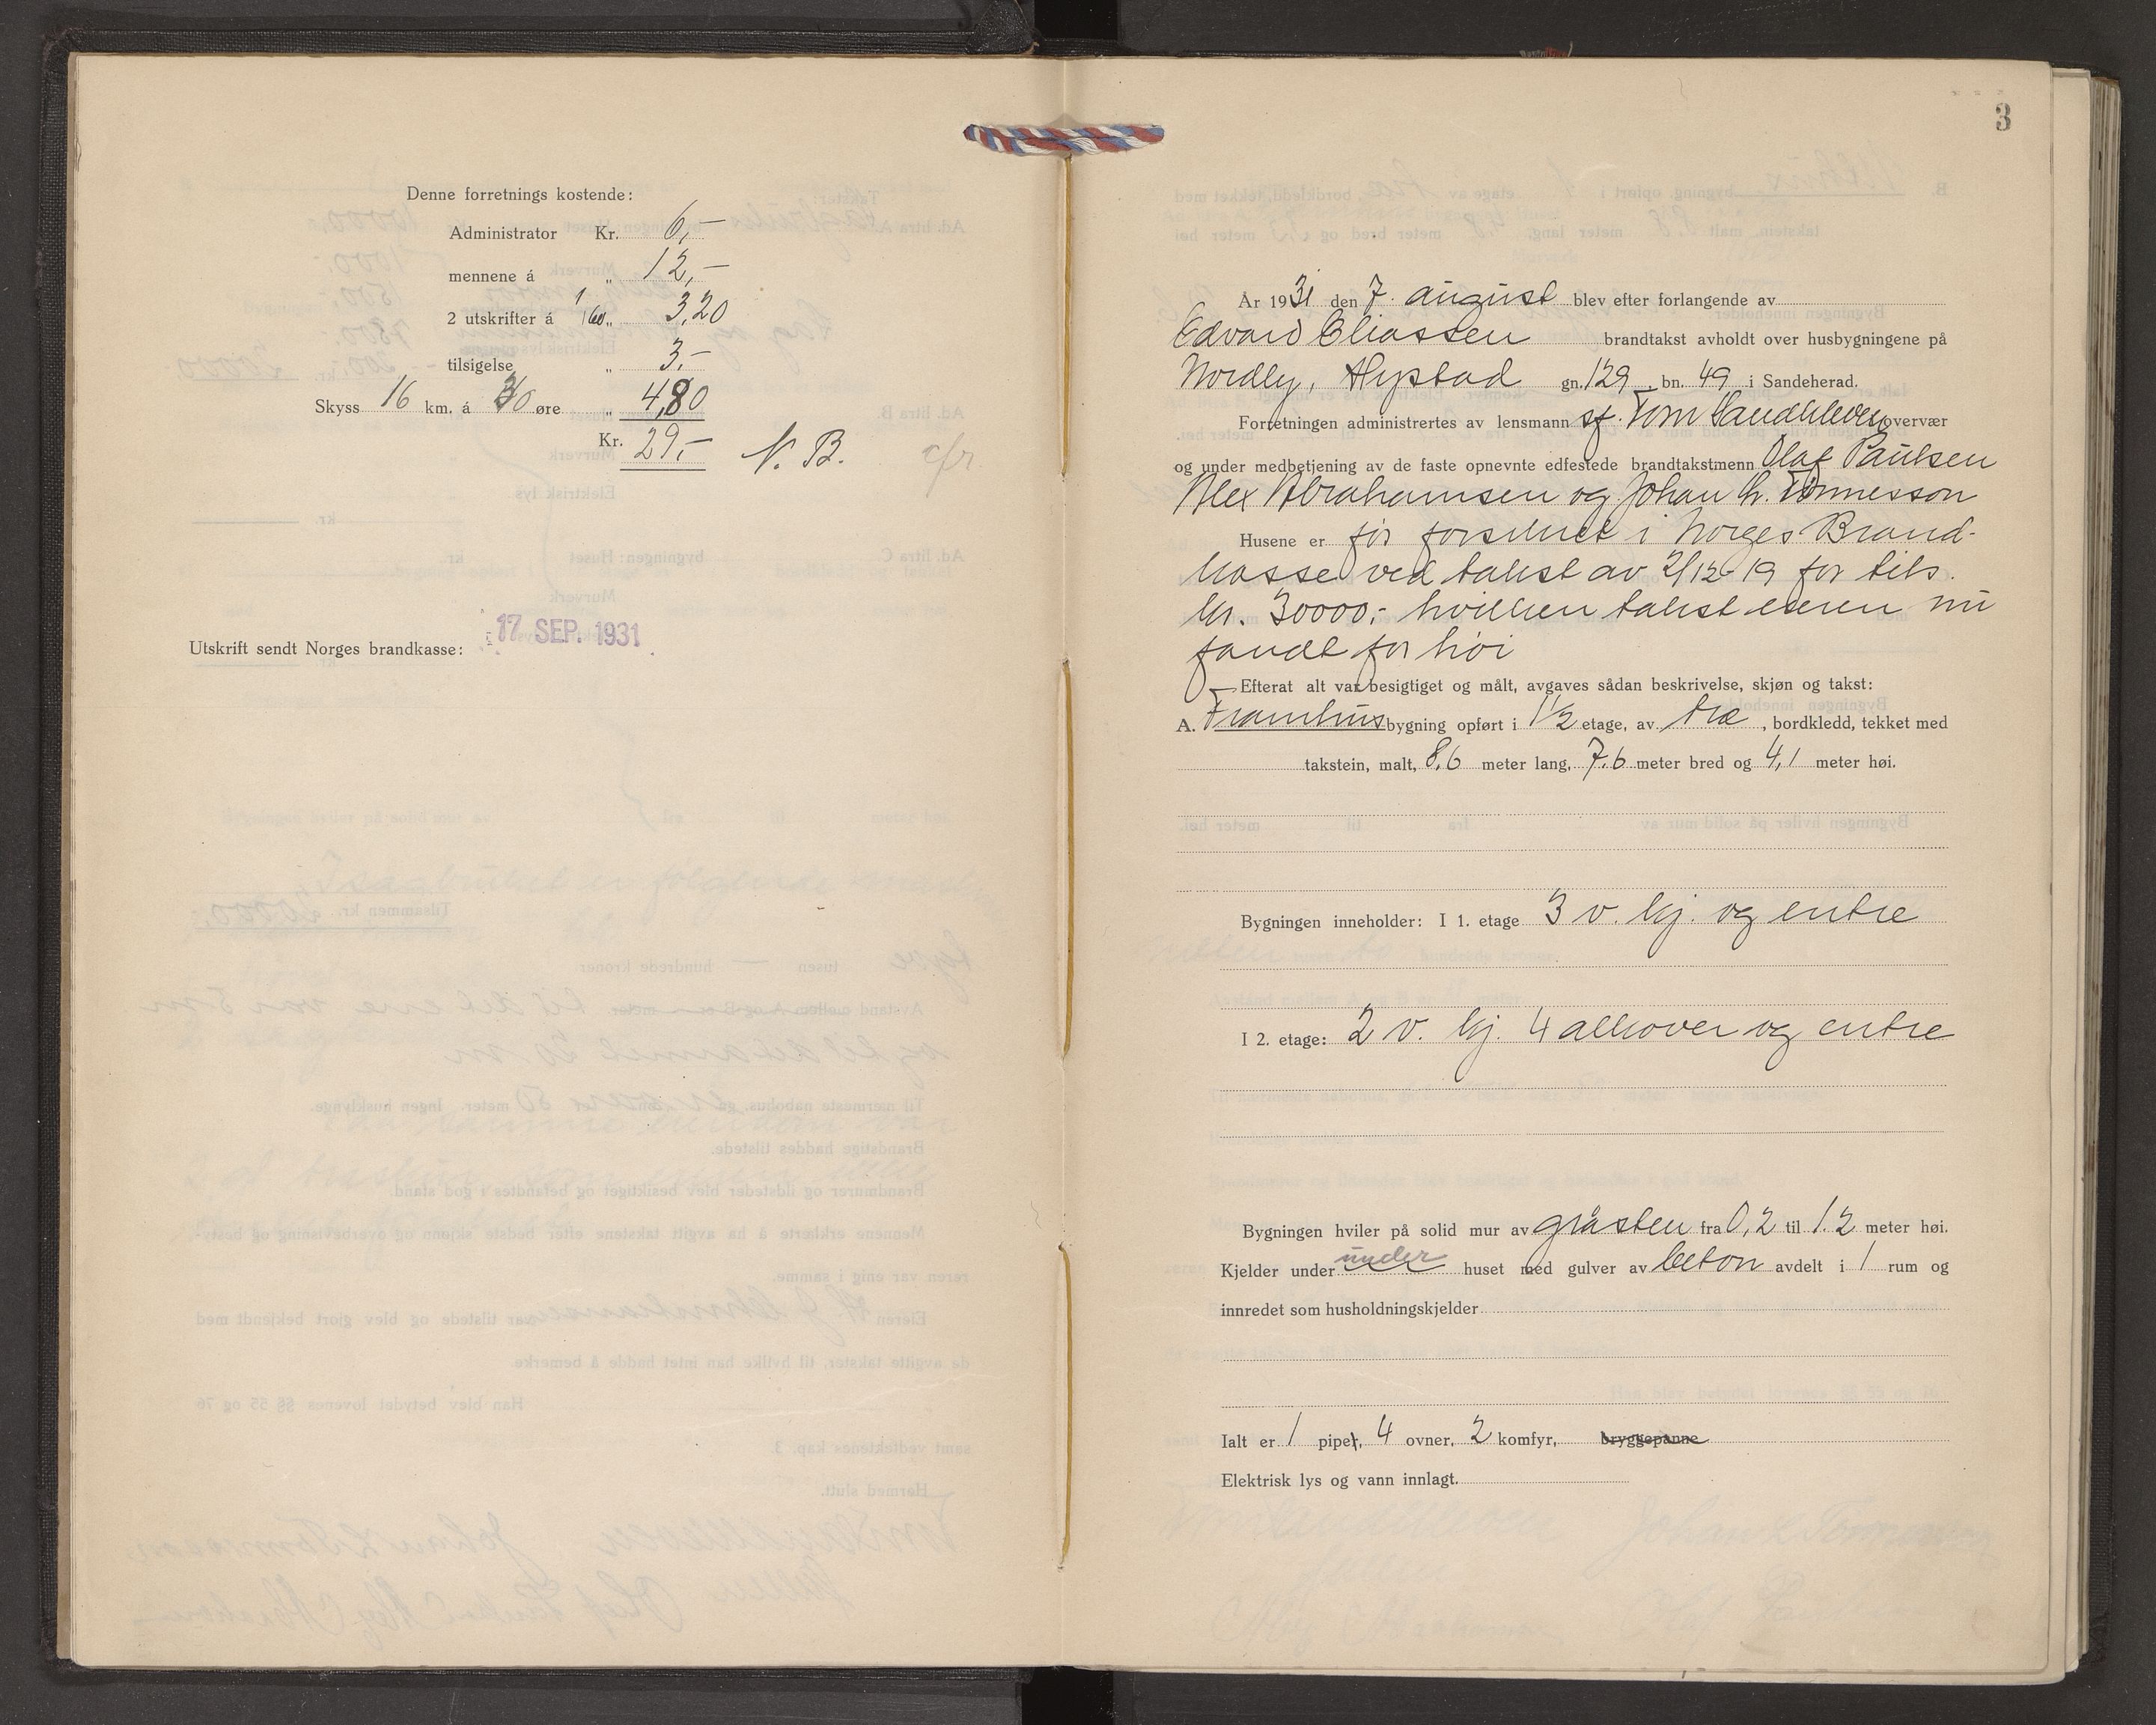 Denne forretnings kostende:
Administrator Kr. 6,-
mennene á „ 12,-
2 utskrifter á 1 60 „ 3,20
tilsigelse „ 3.-
Skyss 16 km. á 30 øre „ 4,80
Kr. 29,- N. B.
Utskrift sendt Norges brandkasse: 17 SEP. 1931
3
År 1931 den 7. august blev efter forlangende av
Edvard Eliassen brandtakst avholdt over husbygningene på
Nordly, Hystad gn. 129, bn. 49 i Sandeherad.
Forretningen administrertes av lensmann sf. Tom Sandkleven overvær
og under medbetjening av de faste opnevnte edfestede brandtakstmenn Olaf Paulsen
Alex Abrahamsen og Johan L. Tønnesson
Husene er før forsikret i Norges Brand-
kasse ved takst av 2/12-19 for tils.
kr. 30000,- hvilken takst eieren nu
fandt for høi
Efterat alt var besigtiget og målt, avgaves sådan beskrivelse, skjøn og takst:
A. Framhus bygning opført i 1½ etage, av træ, bordkledd, tekket med
takstein, malt, 8,6 meter lang, 7.6 meter bred og 4,1 meter høi.
Bygningen inneholder: I 1. etage 3 v. kj. og entre
I 2. etage: 2 v. kj. 4 alkover og entre
Bygningen hviler på solid mur av gråsten fra 0,2 til 1.2 meter høi.
Kjelder under under huset med gulver av beton avdelt i 1 rum og
innredet som husholdningskjelder
Ialt er 1 piper, 4 ovner, 2 komfyr, bryggepanne
Elektrisk lys og vann innlagt.